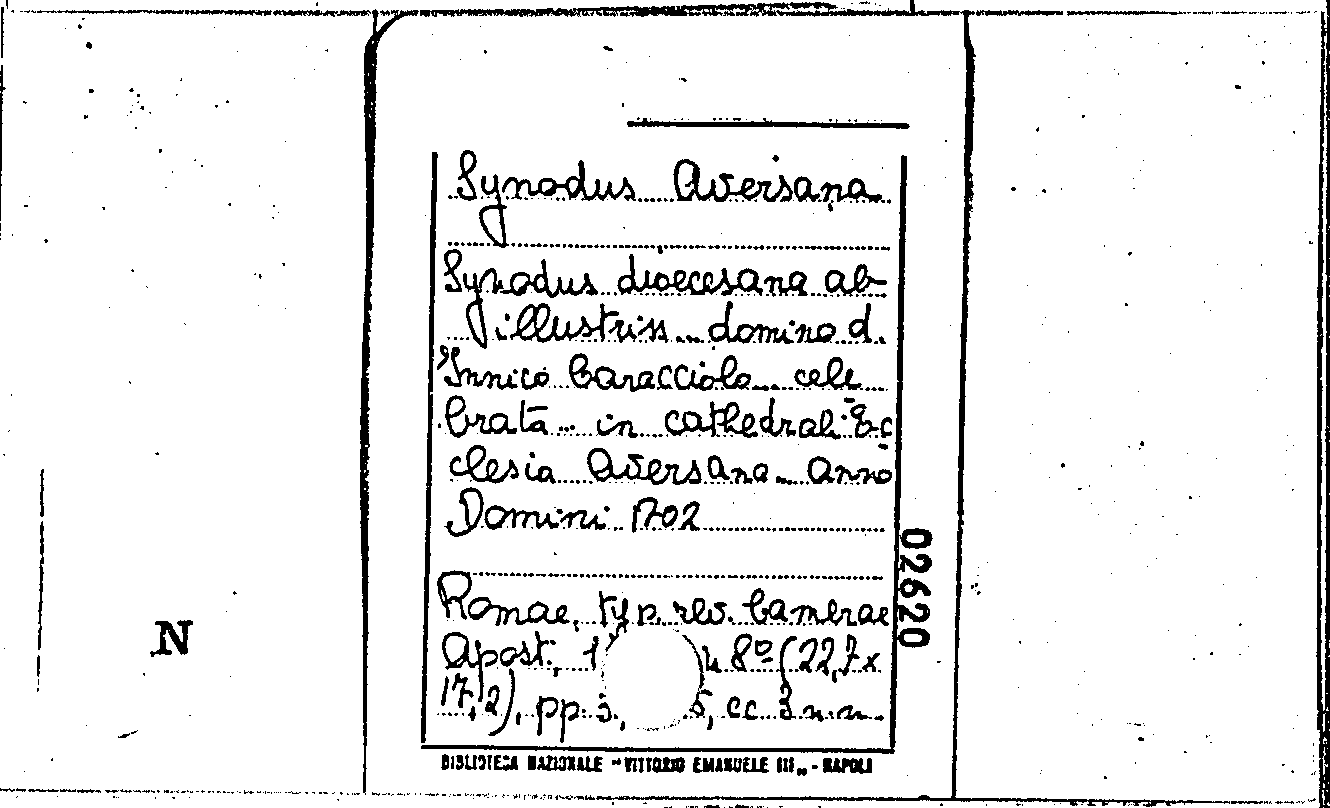 Synodus Aversana
Synodus dioecesana ab
illustriss... domino d.
Innico Caracciolo... cele
brata... in cathedrali Ec
clesia Aversana... anno
Domini 1702
Romae, typ. rev. Camerae
Apost., 1 8º (22,7x
17,2), pp. 5, cc. 3 n.n.
02620
N
BIBLIOTECA NAZIONALE "VITTORIO EMANUELE III" - NAPOLI